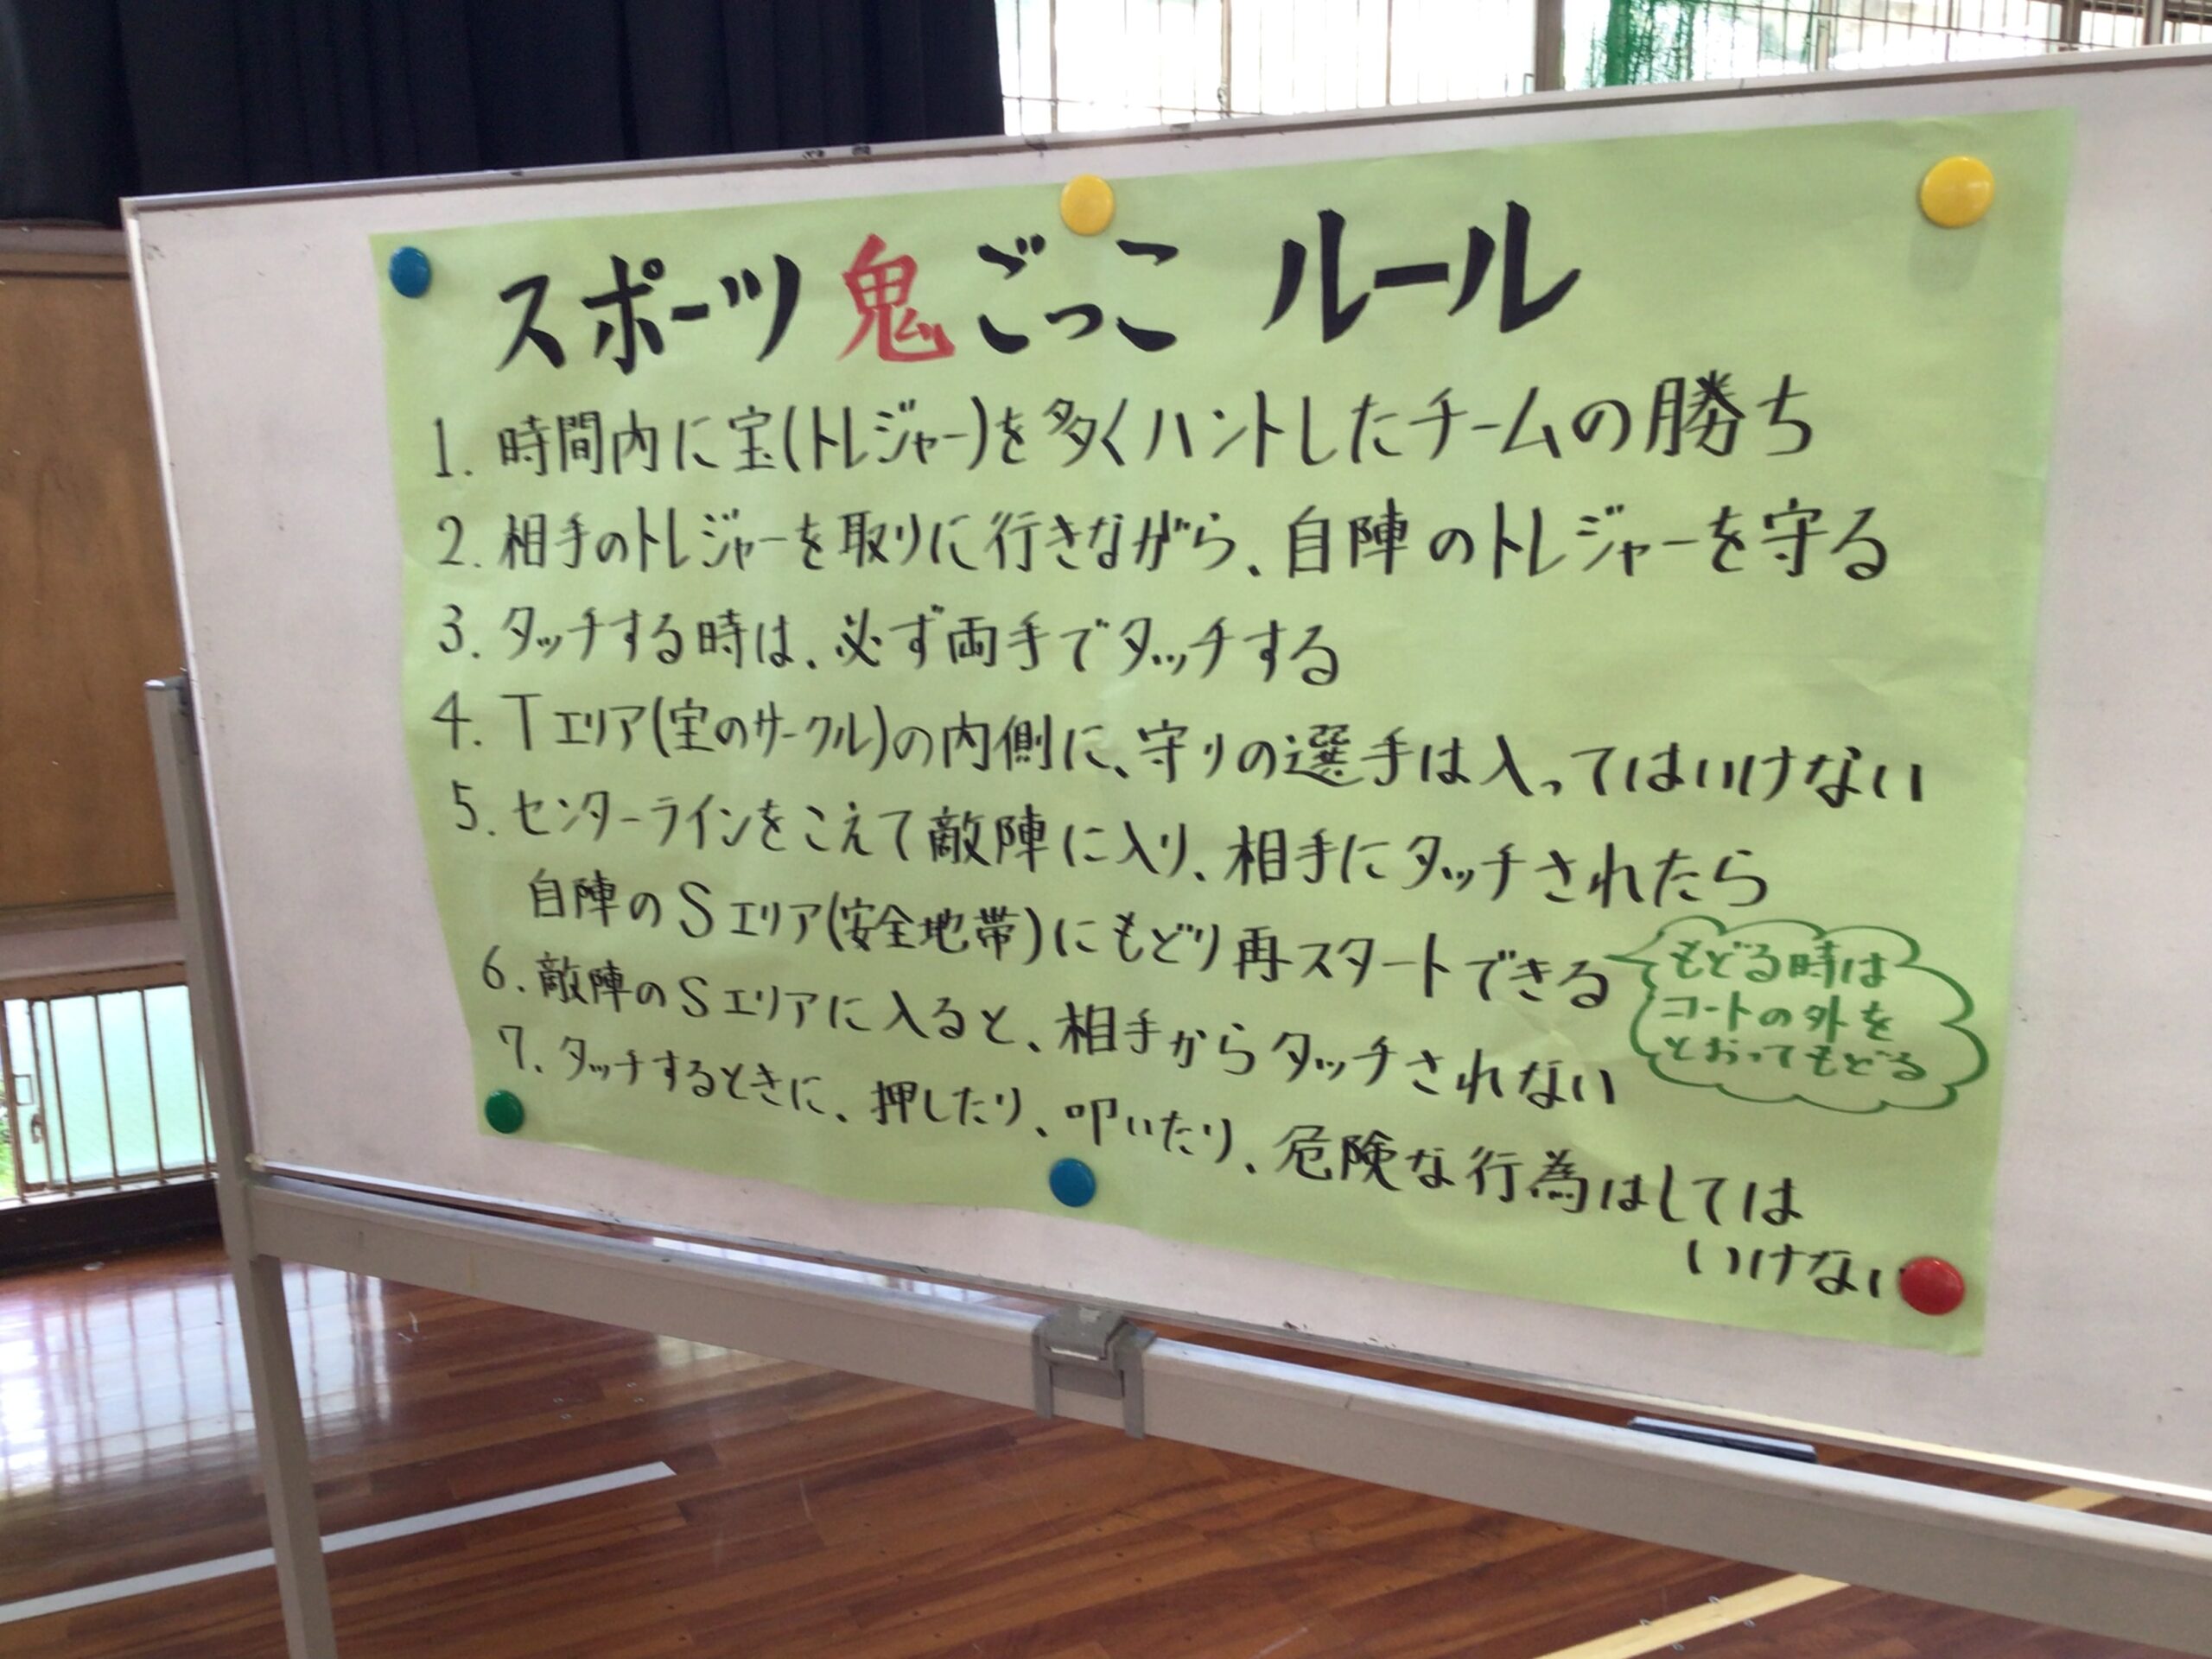 スポーツ鬼ごっこ ルール
1. 時間内に宝(トレジャー)を多くハントしたチームの勝ち
2. 相手のトレジャーを取りに行きながら、自陣のトレジャーを守る
3. タッチする時は、必ず両手でタッチする
4. Tエリア(宝のサークル)の内側に、守りの選手は入ってはいけない
5. センターラインをこえて敵陣に入り、相手にタッチされたら
自陣のSエリア(安全地帯)にもどり再スタートできる
もどる時は
コートの外を
とおってもどる
6. 敵陣のSエリアに入ると、相手からタッチされない
7. タッチするときに、押したり、叩いたり、危険な行為はしては
いけない